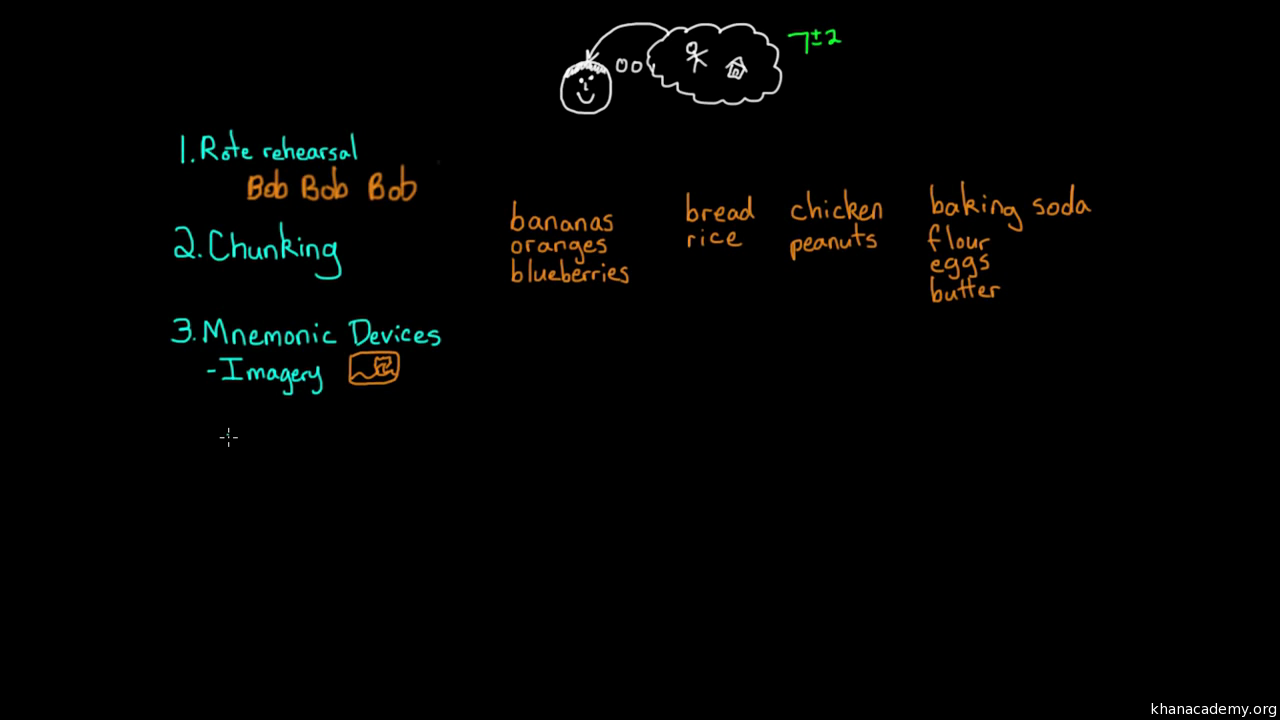 7±2
1. Rote rehearsal
Bob Bob Bob
2. Chunking
bananas
oranges
blueberries
bread
rice
chicken
peanuts
baking soda
flour
eggs
butter
3. Mnemonic Devices
- Imagery
khanacademy.org